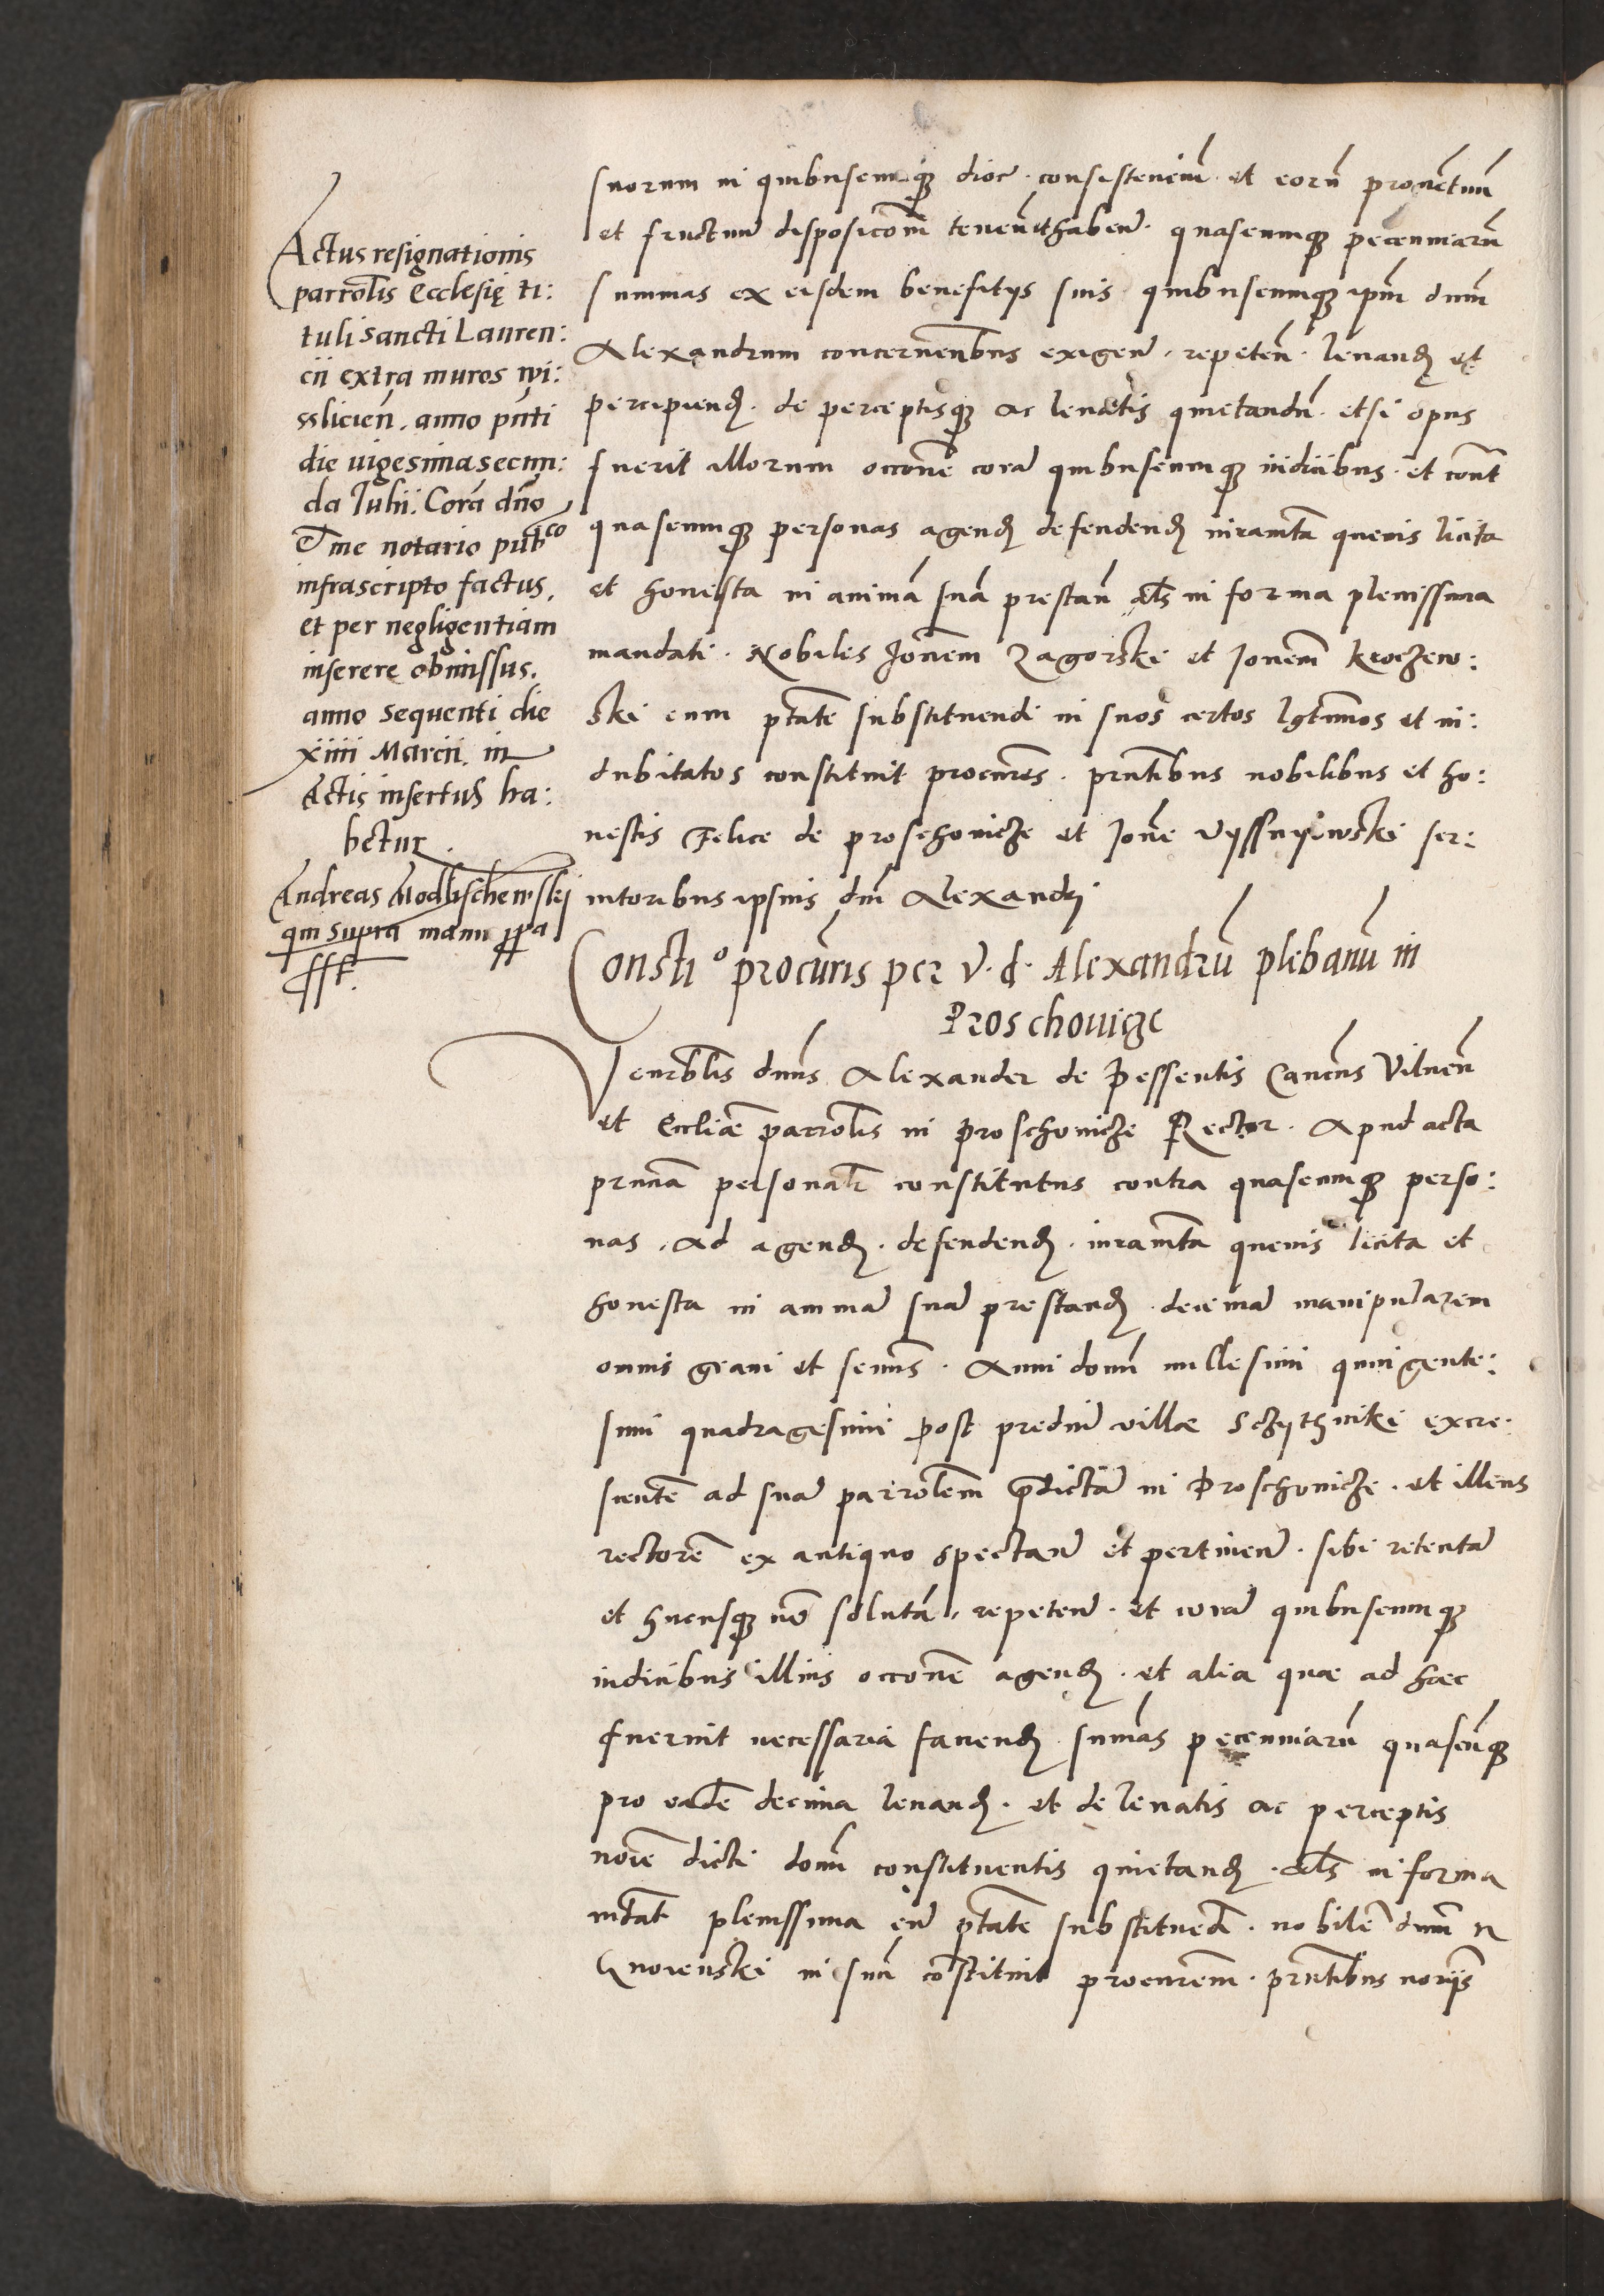 Actus resignationis
parrolis Ecclesię ti:
tuli sancti Lauren:
cii extra muros wi:
sslicieñ. anno pñti
die uigesima secun:
da Iulii. Corã dño
& me notario pubco
infrascripto factus,
et per negligentiam
inserere obmissus.
anno sequenti die
xiiii Marcii. in
Actis insertus ha:
betur.
Andreas
qui supra manu ppa
sst.
suorum in quibuscumq; dioc. consistenciũ et eorũ prouẽtuũ
et fructuũ disposicõm teneñ et habeñ. quascumq; pecuniarũ
summas ex eisdem benefitijs suis quibuscumq; ipm dnm
Alexandrum concernentibus exigeñ. repeteñ. leuand. et
percipiend. de perceptisq; ac leuatis quietandũ. et si opus
fuerit illorum occõne corã quibuscumq; iudicibus. et cont
quascumq; personas agend. defendend. iuramta queuis licita
et honesta in animã suã prestañ als in forma plenissima
mandati. Nobiles Jonem Zagorski et Jonem Kroczew:
ski cum ptate substituendi in suos certos lgtimos et in:
dubitatos constituit procures. prntibus nobilibus et ho:
nestis Felice de proschouicze et Jone Vyssnyowski ser:
uitoribus ipsius dni Alexandri
Constio procuris per V. d. Alexandrũ plebanũ in
Proschouicze
Venrblis dnus Alexander de Pessentis Canõcus Vilneñ
et Eccliæ parrolis in Proschouicze Rector. Apud acta
prncia personalr constitutus contra quascumq; perso:
nas. Ad agend. defendend. iuramta queuis licita et
honesta in animã suã prestand. decimã manipularem
omnis grani et semis. Anni domi millesimi quingente:
simi quadragesimi post prediũ villæ Sczythniki excre:
scentẽ ad suã parrolem pdictã in Proschouicze. et illeus
rectorẽ ex antiquo spectañ et pertineñ. sibi retentã
et hucusq; nõ solutã, repeteñ. et corã quibuscumq;
iudicibus illius occone agend. et alia quæ ad hæc
fuerint necessaria faciend. summas pecuniarũ quascũq;
pro eadẽ decima leuand. et de leuatis ac perceptis
noie dicti domi constituentis quietand. als in forma
mdati plenissima cũ ptate substituedi. nobilẽ dnm N
in suũ cõstituit procurem. prntibus